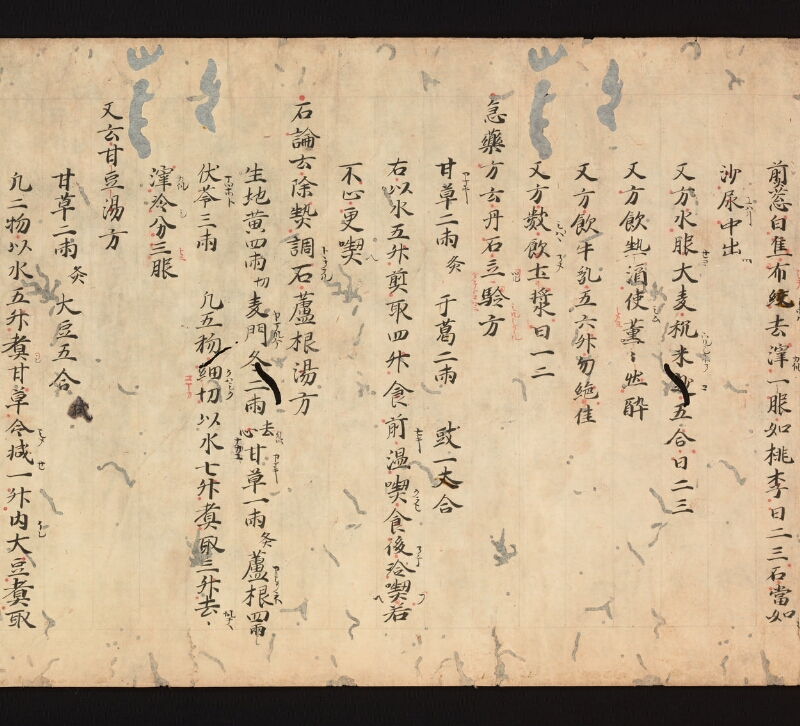 前葱白焦布絞去滓一服如桃李日二三石當如
沙尿中出
又方水服大麦䴬末五合日二三
又方飲熱酒使薫〻然酔
又方飲牛乳五六升勿絶佳
又方數飲土漿日一二
急藥方云丹石立驗方
甘草二兩 炙 干葛二兩 豉一大合
右以水五升煎取四升食前温喫食後冷喫若
不止更喫
石論云除熱調石蘆根湯方
生地黄四兩 切 麦門冬二兩 去心 甘草一兩 炙 蘆根四兩
伏苓三兩 凢五物細切以水七升煮取三升去
滓冷分三服
又云甘豆湯方
甘草二兩 炙 大豆五合
凢二物以水五升煮甘草令減一升内大豆煮取